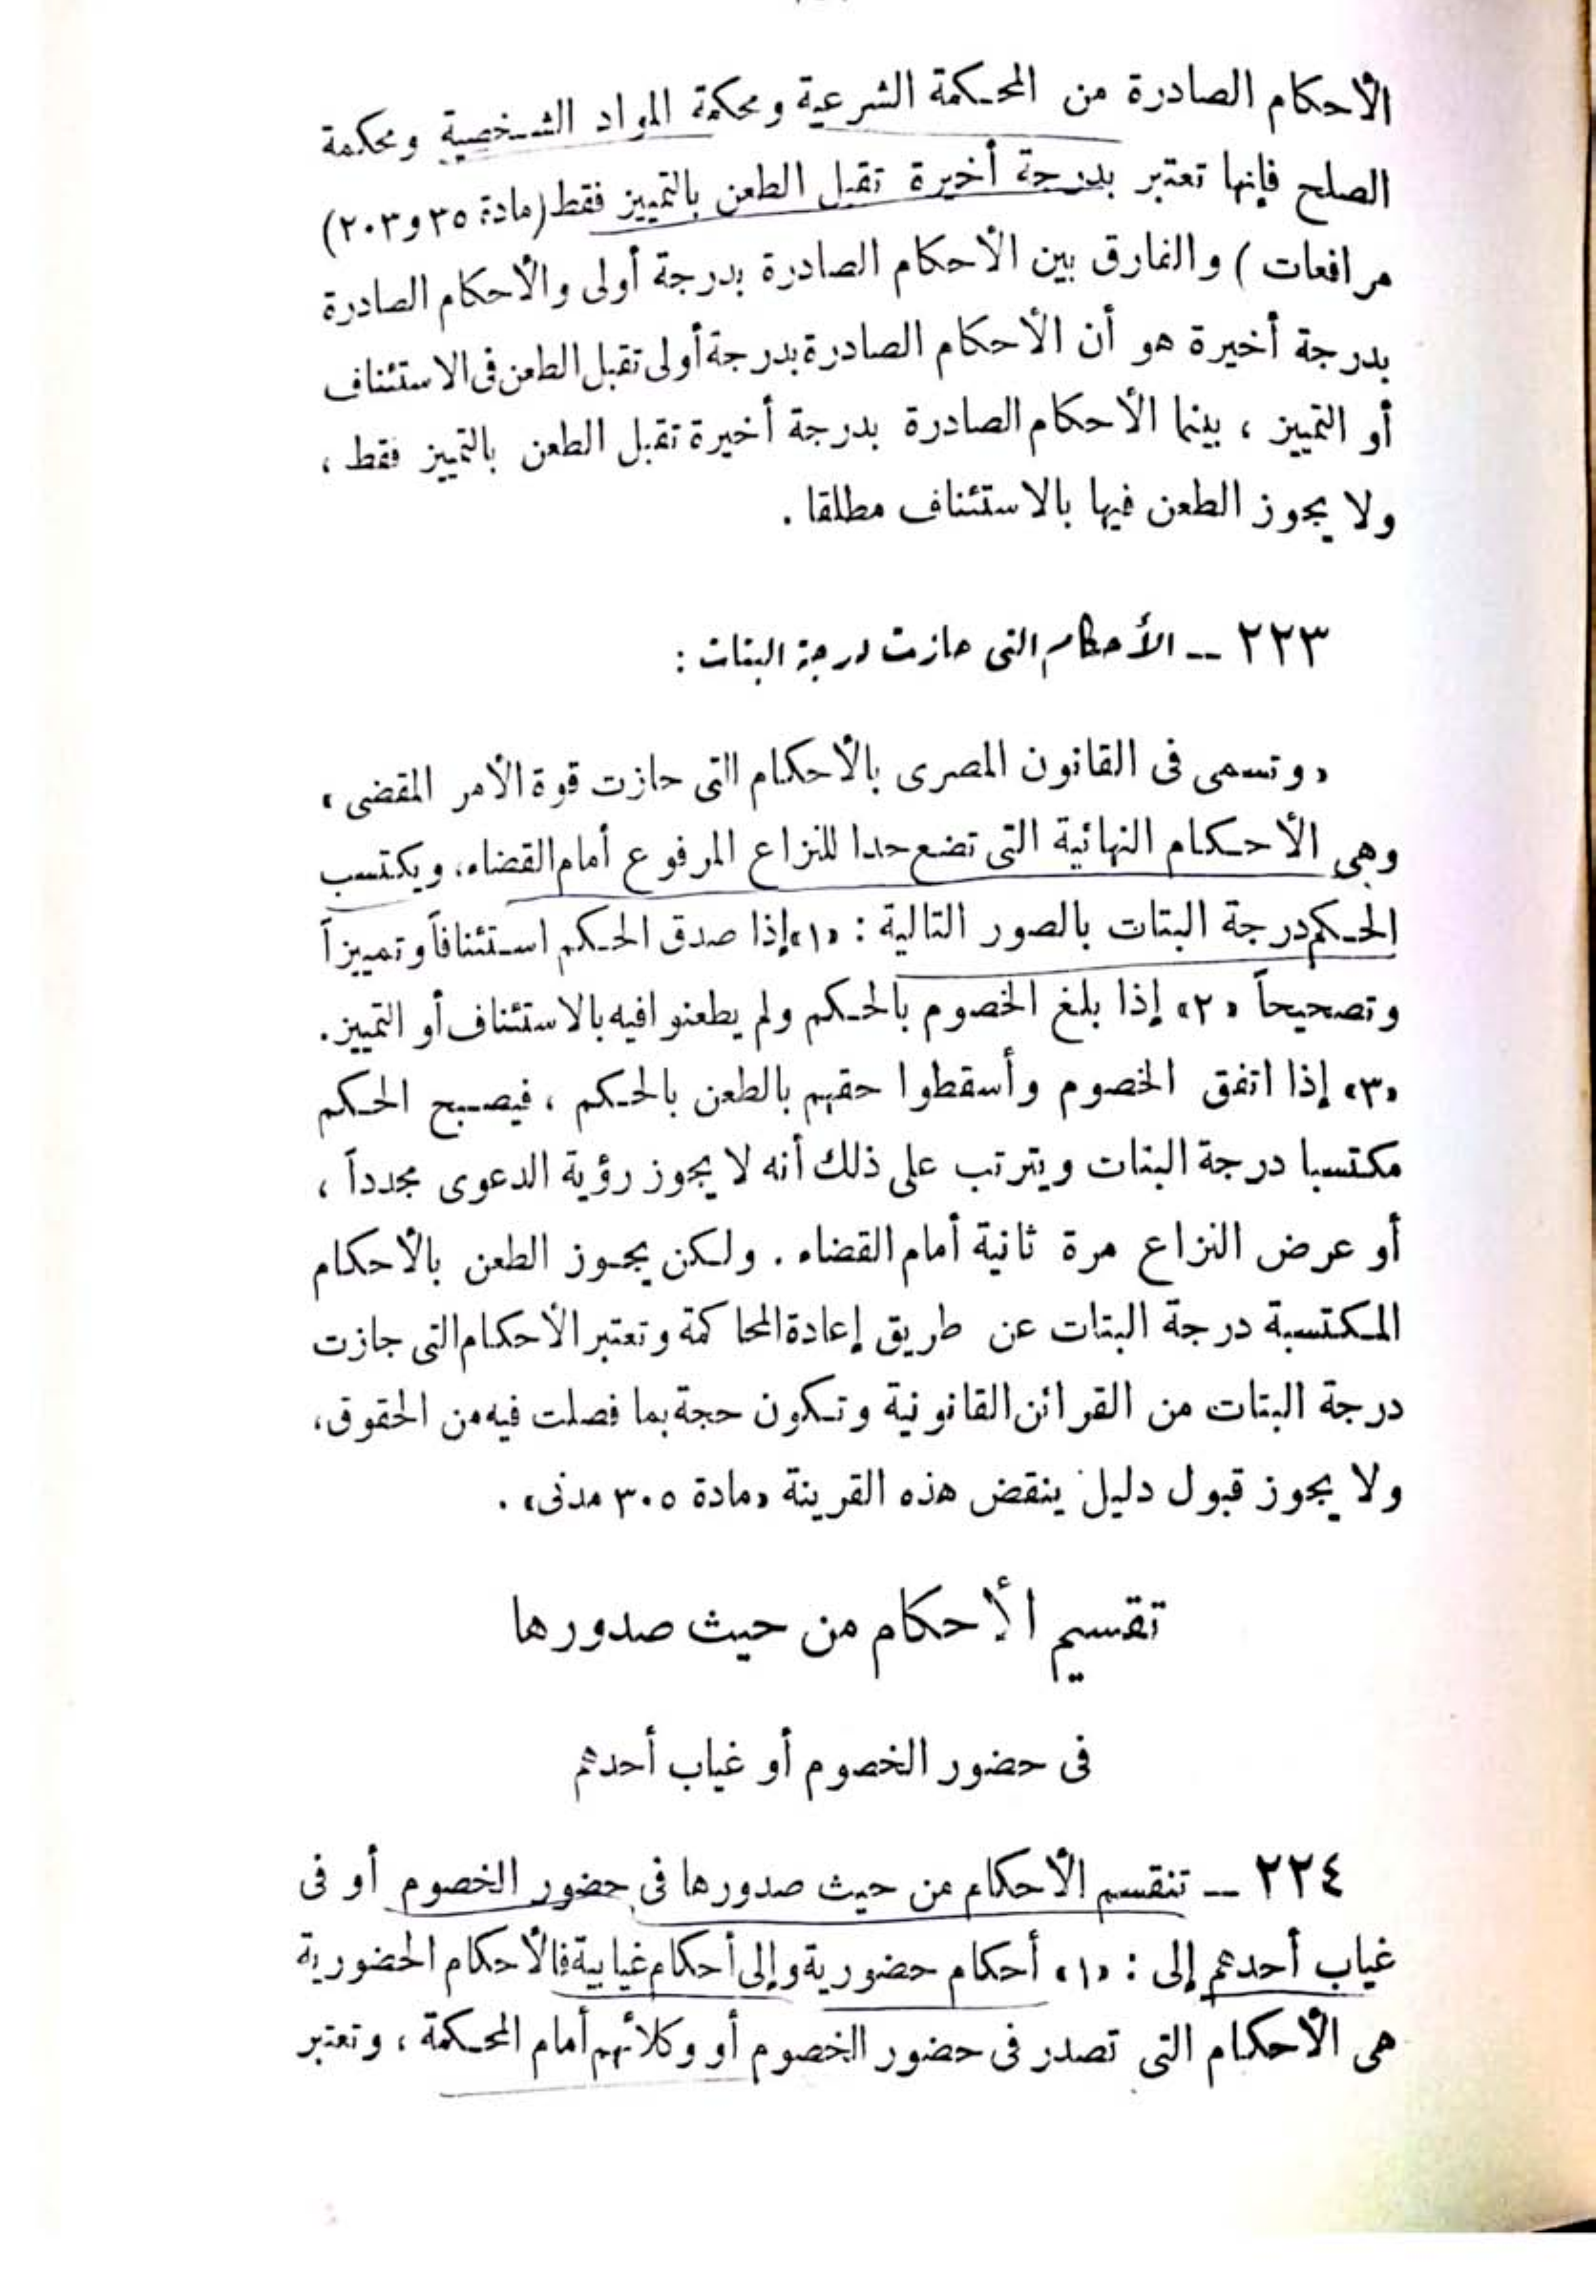 الأحكام الصادرة من المحكمة الشرعية ومحكمة المواد الشخصية ومحكمة
الصلح فإنها تعتبر بدرجة أخيرة تقبل الطعن بالتمييز فقط (مادة ٣٥ و ٢٠٣)
مرافعات ) والفارق بين الأحكام الصادرة بدرجة أولى والأحكام الصادرة
بدرجة أخيرة هو أن الأحكام الصادرة بدرجة أولى تقبل الطعن فى الاستئناف
أو التمييز ، بينما الأحكام الصادرة بدرجة أخيرة تقبل الطعن بالتمييز فقط ،
ولا يجوز الطعن فيها بالاستئناف مطلقا .
٢٢٣ -- الأحكام التى حازت درجة البتات :
« وتسمى فى القانون المصرى بالأحكام التى حازت قوة الأمر المقضى »
وهى الأحكام النهائية التى تضع حدا للنزاع المرفوع أمام القضاء، ويكتسب
الحكم درجة البتات بالصور التالية : «١» إذا صدق الحكم استئنافاً وتمييزاً
وتصحيحاً «٢» إذا بلغ الخصوم بالحكم ولم يطعنوا فيه بالاستئناف أو التمييز .
«٣» إذا اتفق الخصوم وأسقطوا حقهم بالطعن بالحكم ، فيصبح الحكم
مكتسبا درجة البتات ويترتب على ذلك أنه لا يجوز رؤية الدعوى مجدداً ،
أو عرض النزاع مرة ثانية أمام القضاء . ولكن يجوز الطعن بالأحكام
المكتسبة درجة البتات عن طريق إعادة المحاكمة وتعتبر الأحكام التى جازت
درجة البتات من القرائن القانونية وتكون حجة بما فصلت فيه من الحقوق ،
ولا يجوز قبول دليل ينقض هذه القرينة «مادة ٣٠٥ مدنى» .
تقسيم الأحكام من حيث صدورها
فى حضور الخصوم أو غياب أحدهم
٢٢٤ -- تنقسم الأحكام من حيث صدورها فى حضور الخصوم أو فى
غياب أحدهم إلى : «١» أحكام حضورية وإلى أحكام غيابية فالأحكام الحضورية
هى الأحكام التى تصدر فى حضور الخصوم أو وكلائهم أمام المحكمة ، وتعتبر